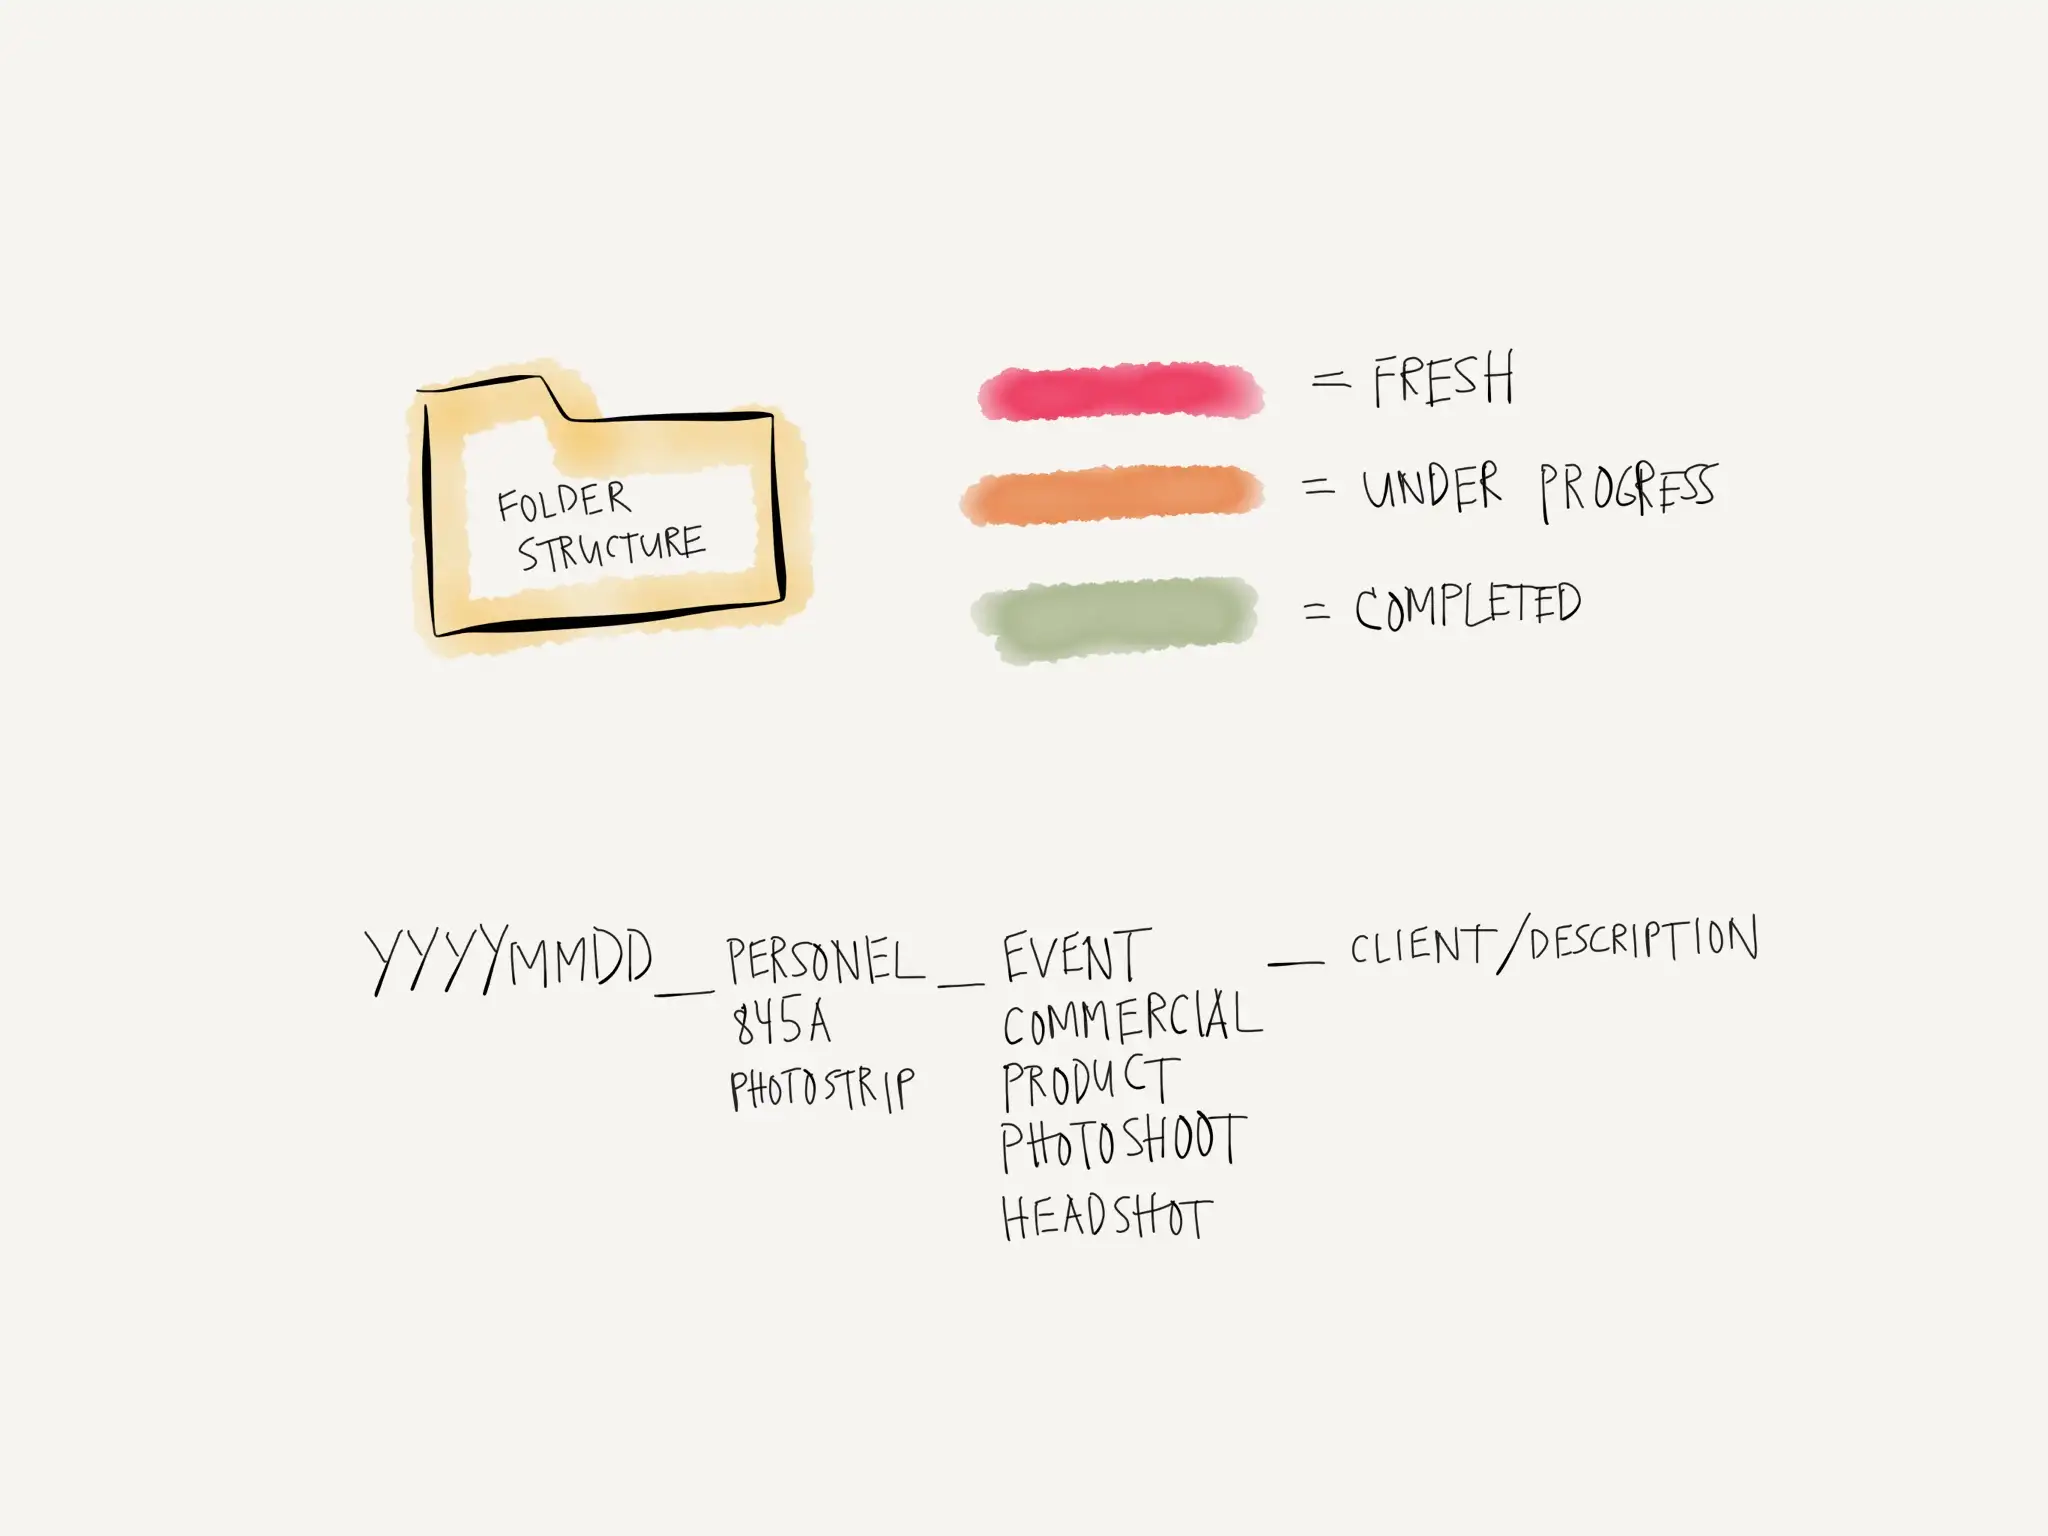 FOLDER
STRUCTURE
= FRESH
= UNDER PROGRESS
= COMPLETED
YYYYMMDD_PERSONEL_EVENT_CLIENT/DESCRIPTION
845A COMMERCIAL
PHOTOSTRIP PRODUCT
PHOTOSHOOT
HEADSHOT